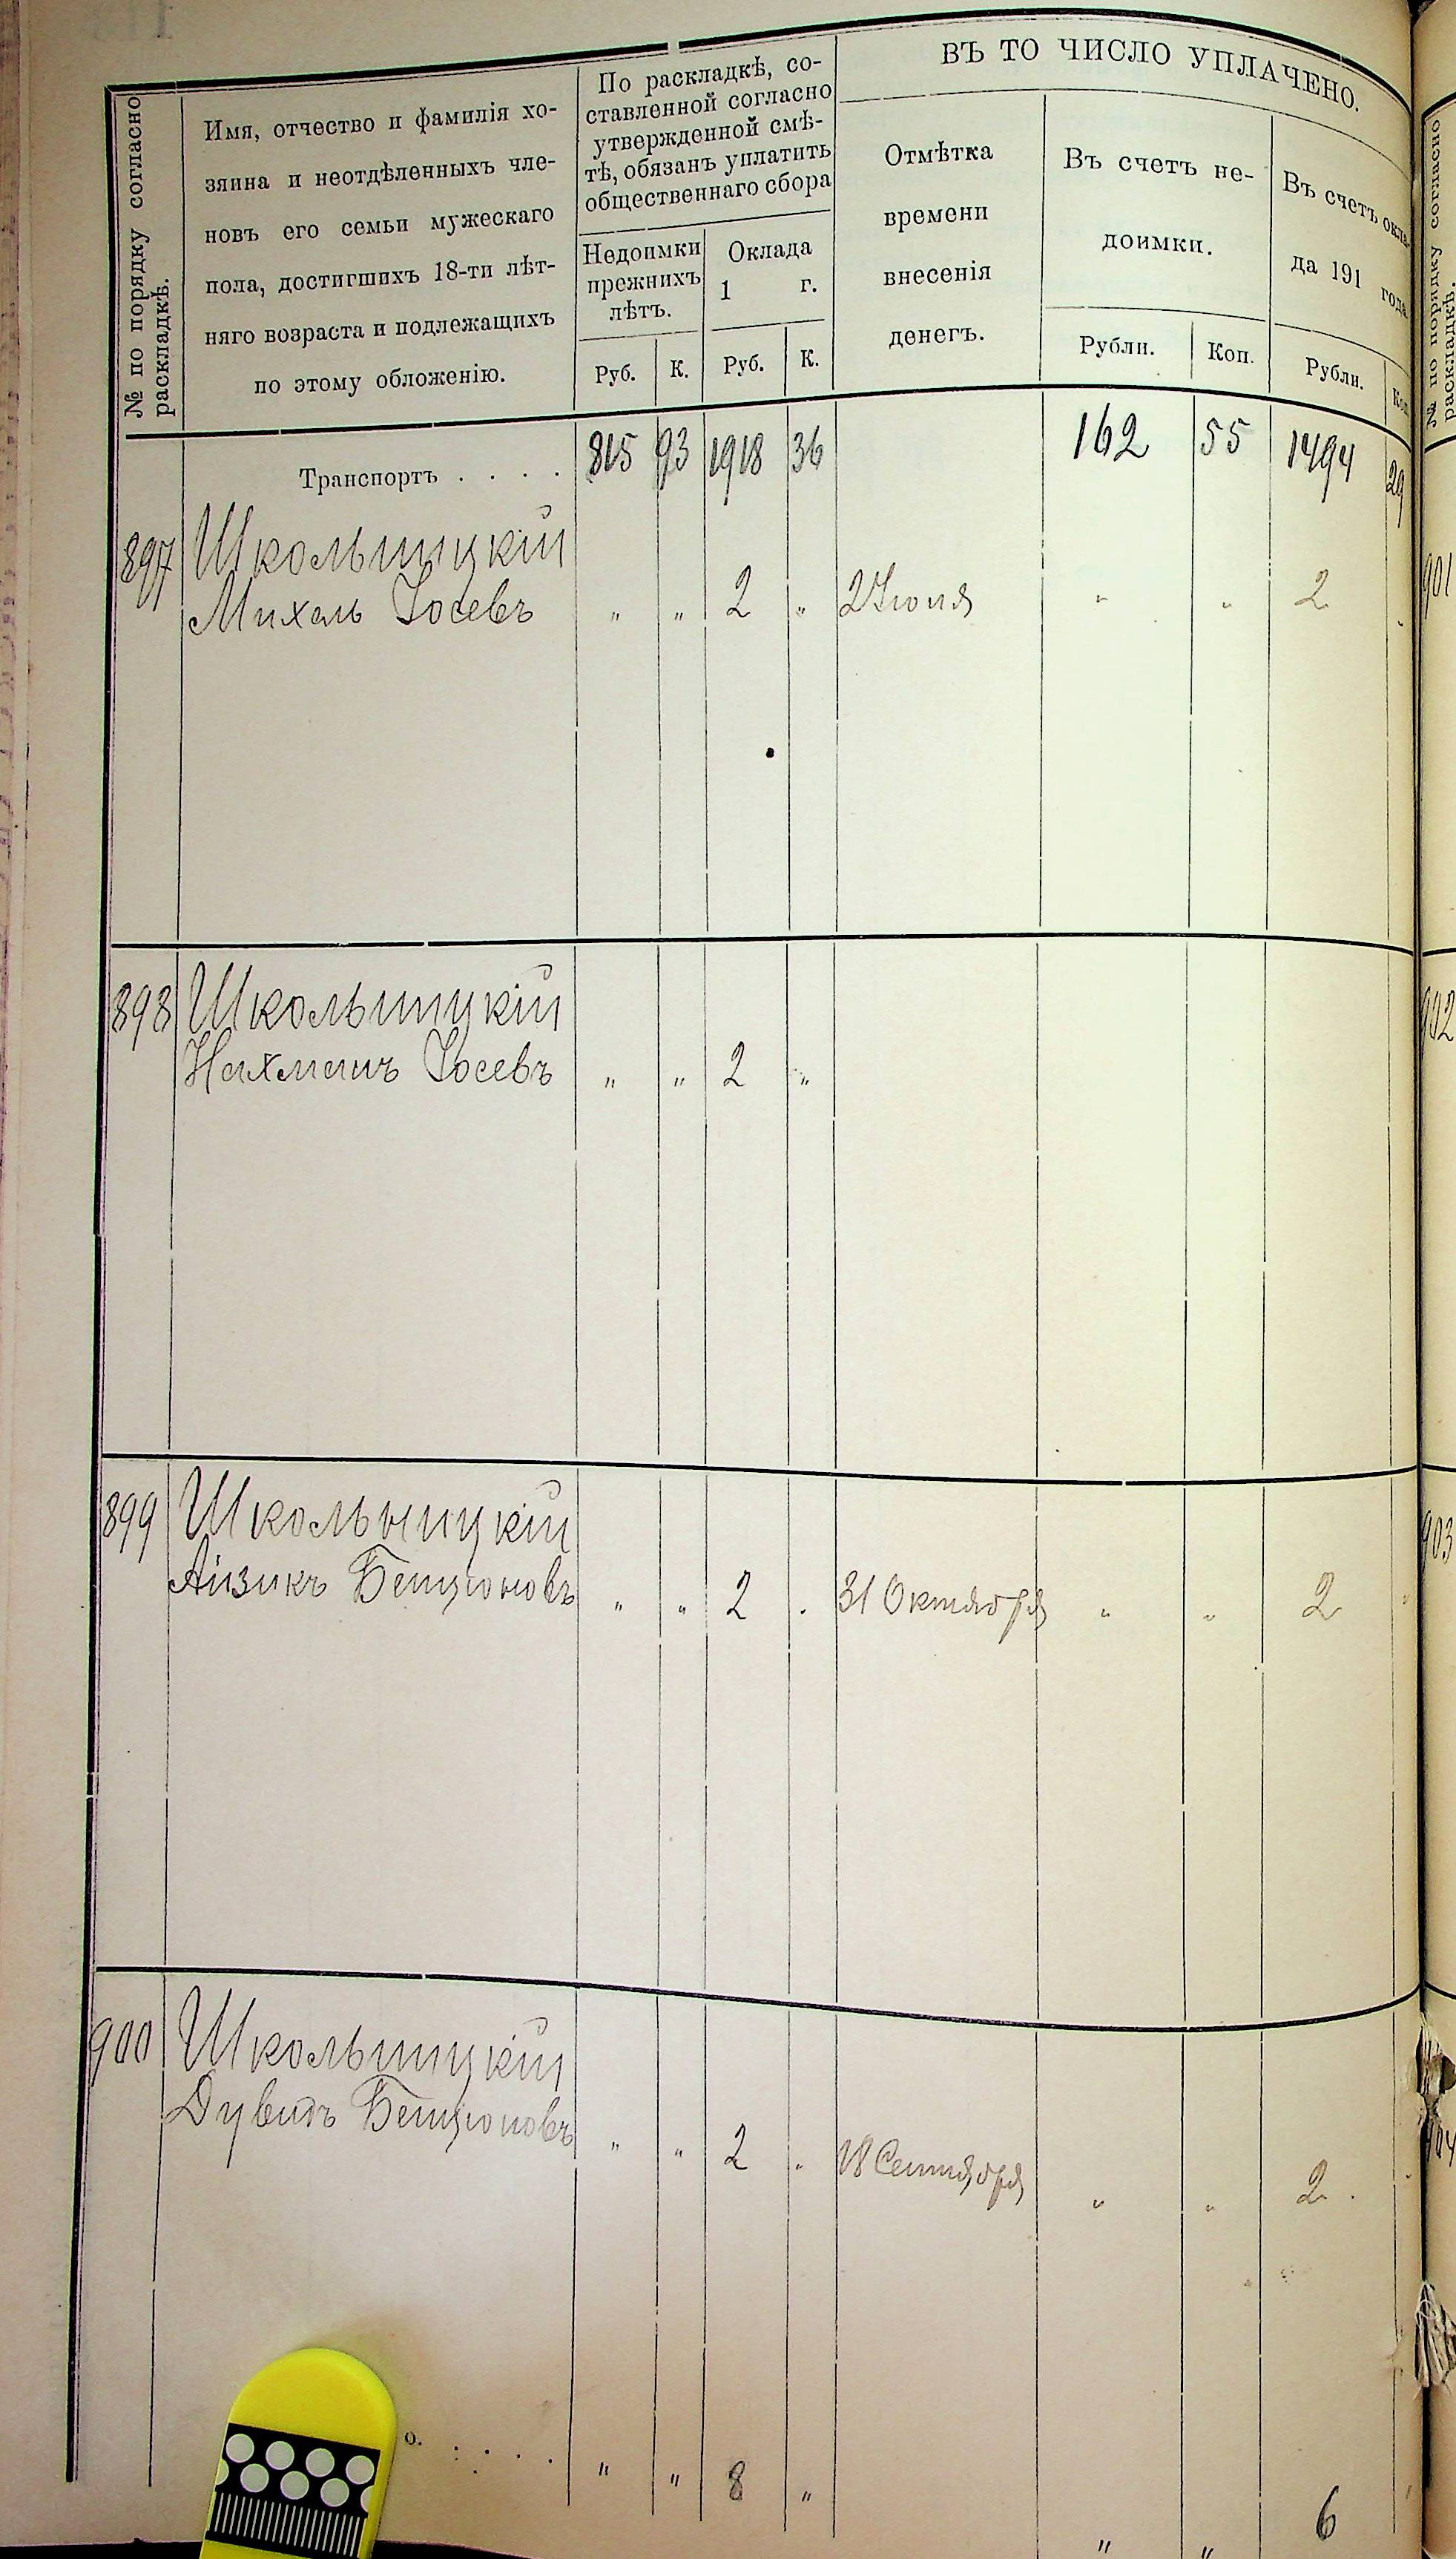 № по порядку согласно
раскладкѣ.
Имя, отчество и фамилія хо-
зяина и неотдѣленныхъ чле-
новъ его семьи мужескаго
пола, достигшихъ 18-ти лѣт-
няго возраста и подлежащихъ
по этому обложенію.
По раскладкѣ, со-
ставленной согласно
утвержденной смѣ-
тѣ, обязанъ уплатить
общественнаго сбора
Недоимки
прежнихъ
лѣтъ.
Оклада
1 г.
Руб. К. Руб. К.
ВЪ ТО ЧИСЛО УПЛАЧЕНО.
Отмѣтка
времени
внесенія
денегъ.
Въ счетъ не-
доимки.
Рубли. Коп.
Въ счетъ окла-
да 191 года
Рубли. Коп.
Транспортъ . . . . 815 93 1918 36 162 55 1494 29
897 Школьницкій
Михель Іосевъ " " 2 " 2 Іюля " " 2 "
898 Школьницкій
Нахманъ Іосевъ " " 2 "
899 Школьницкій
Айзикъ Бенціоновъ " " 2 . 31 Октября " " 2 "
900 Школьницкій
Дувидъ Бенціоновъ " " 2 " 18 Сентября " " 2 .
о. . . . . " " 8 " " " 6
№ по порядку согласно
раскладкѣ.
901
902
903
904